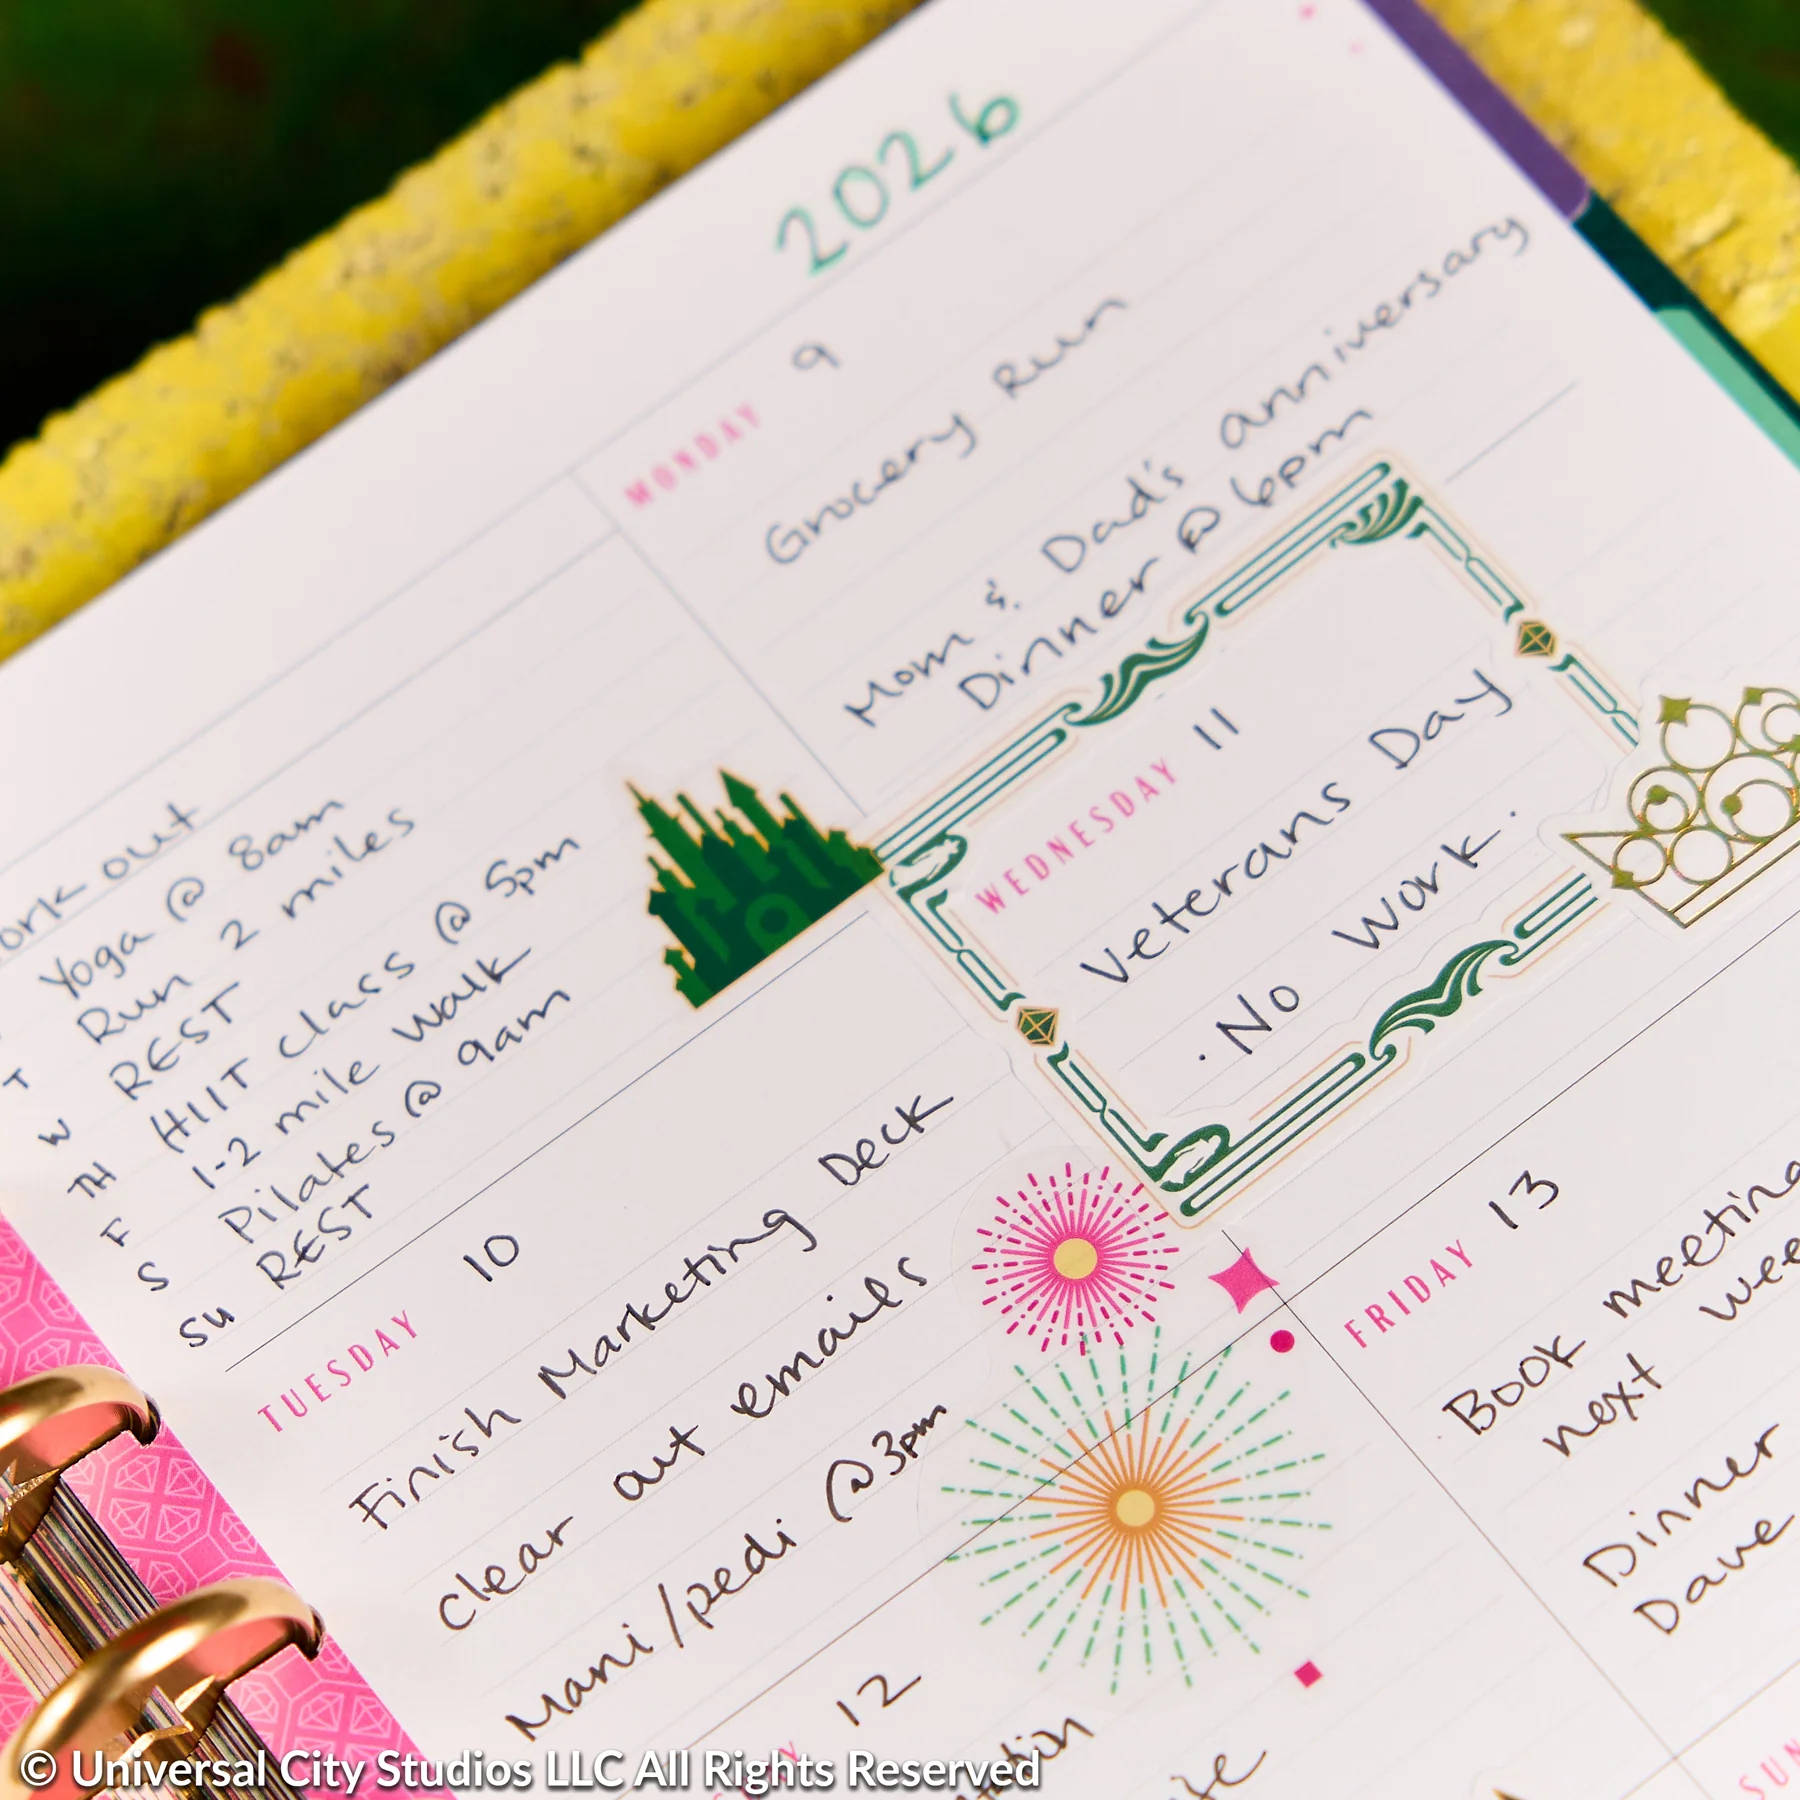 2026
MONDAY 9
Grocery Run
Mom & Dad's anniversary
Dinner @ 6pm
work out
Yoga @ 8am
T Run 2 miles
W REST
TH HIIT class @ 5pm
F 1-2 mile walk
S Pilates @ 9am
SU REST
WEDNESDAY 11
Veterans Day
· No Work ·
TUESDAY 10
Finish Marketing Deck
Clear out emails
Mani/pedi @ 3pm
FRIDAY 13
Book meeting
next
Dinner
Dave
12
© Universal City Studios LLC All Rights Reserved